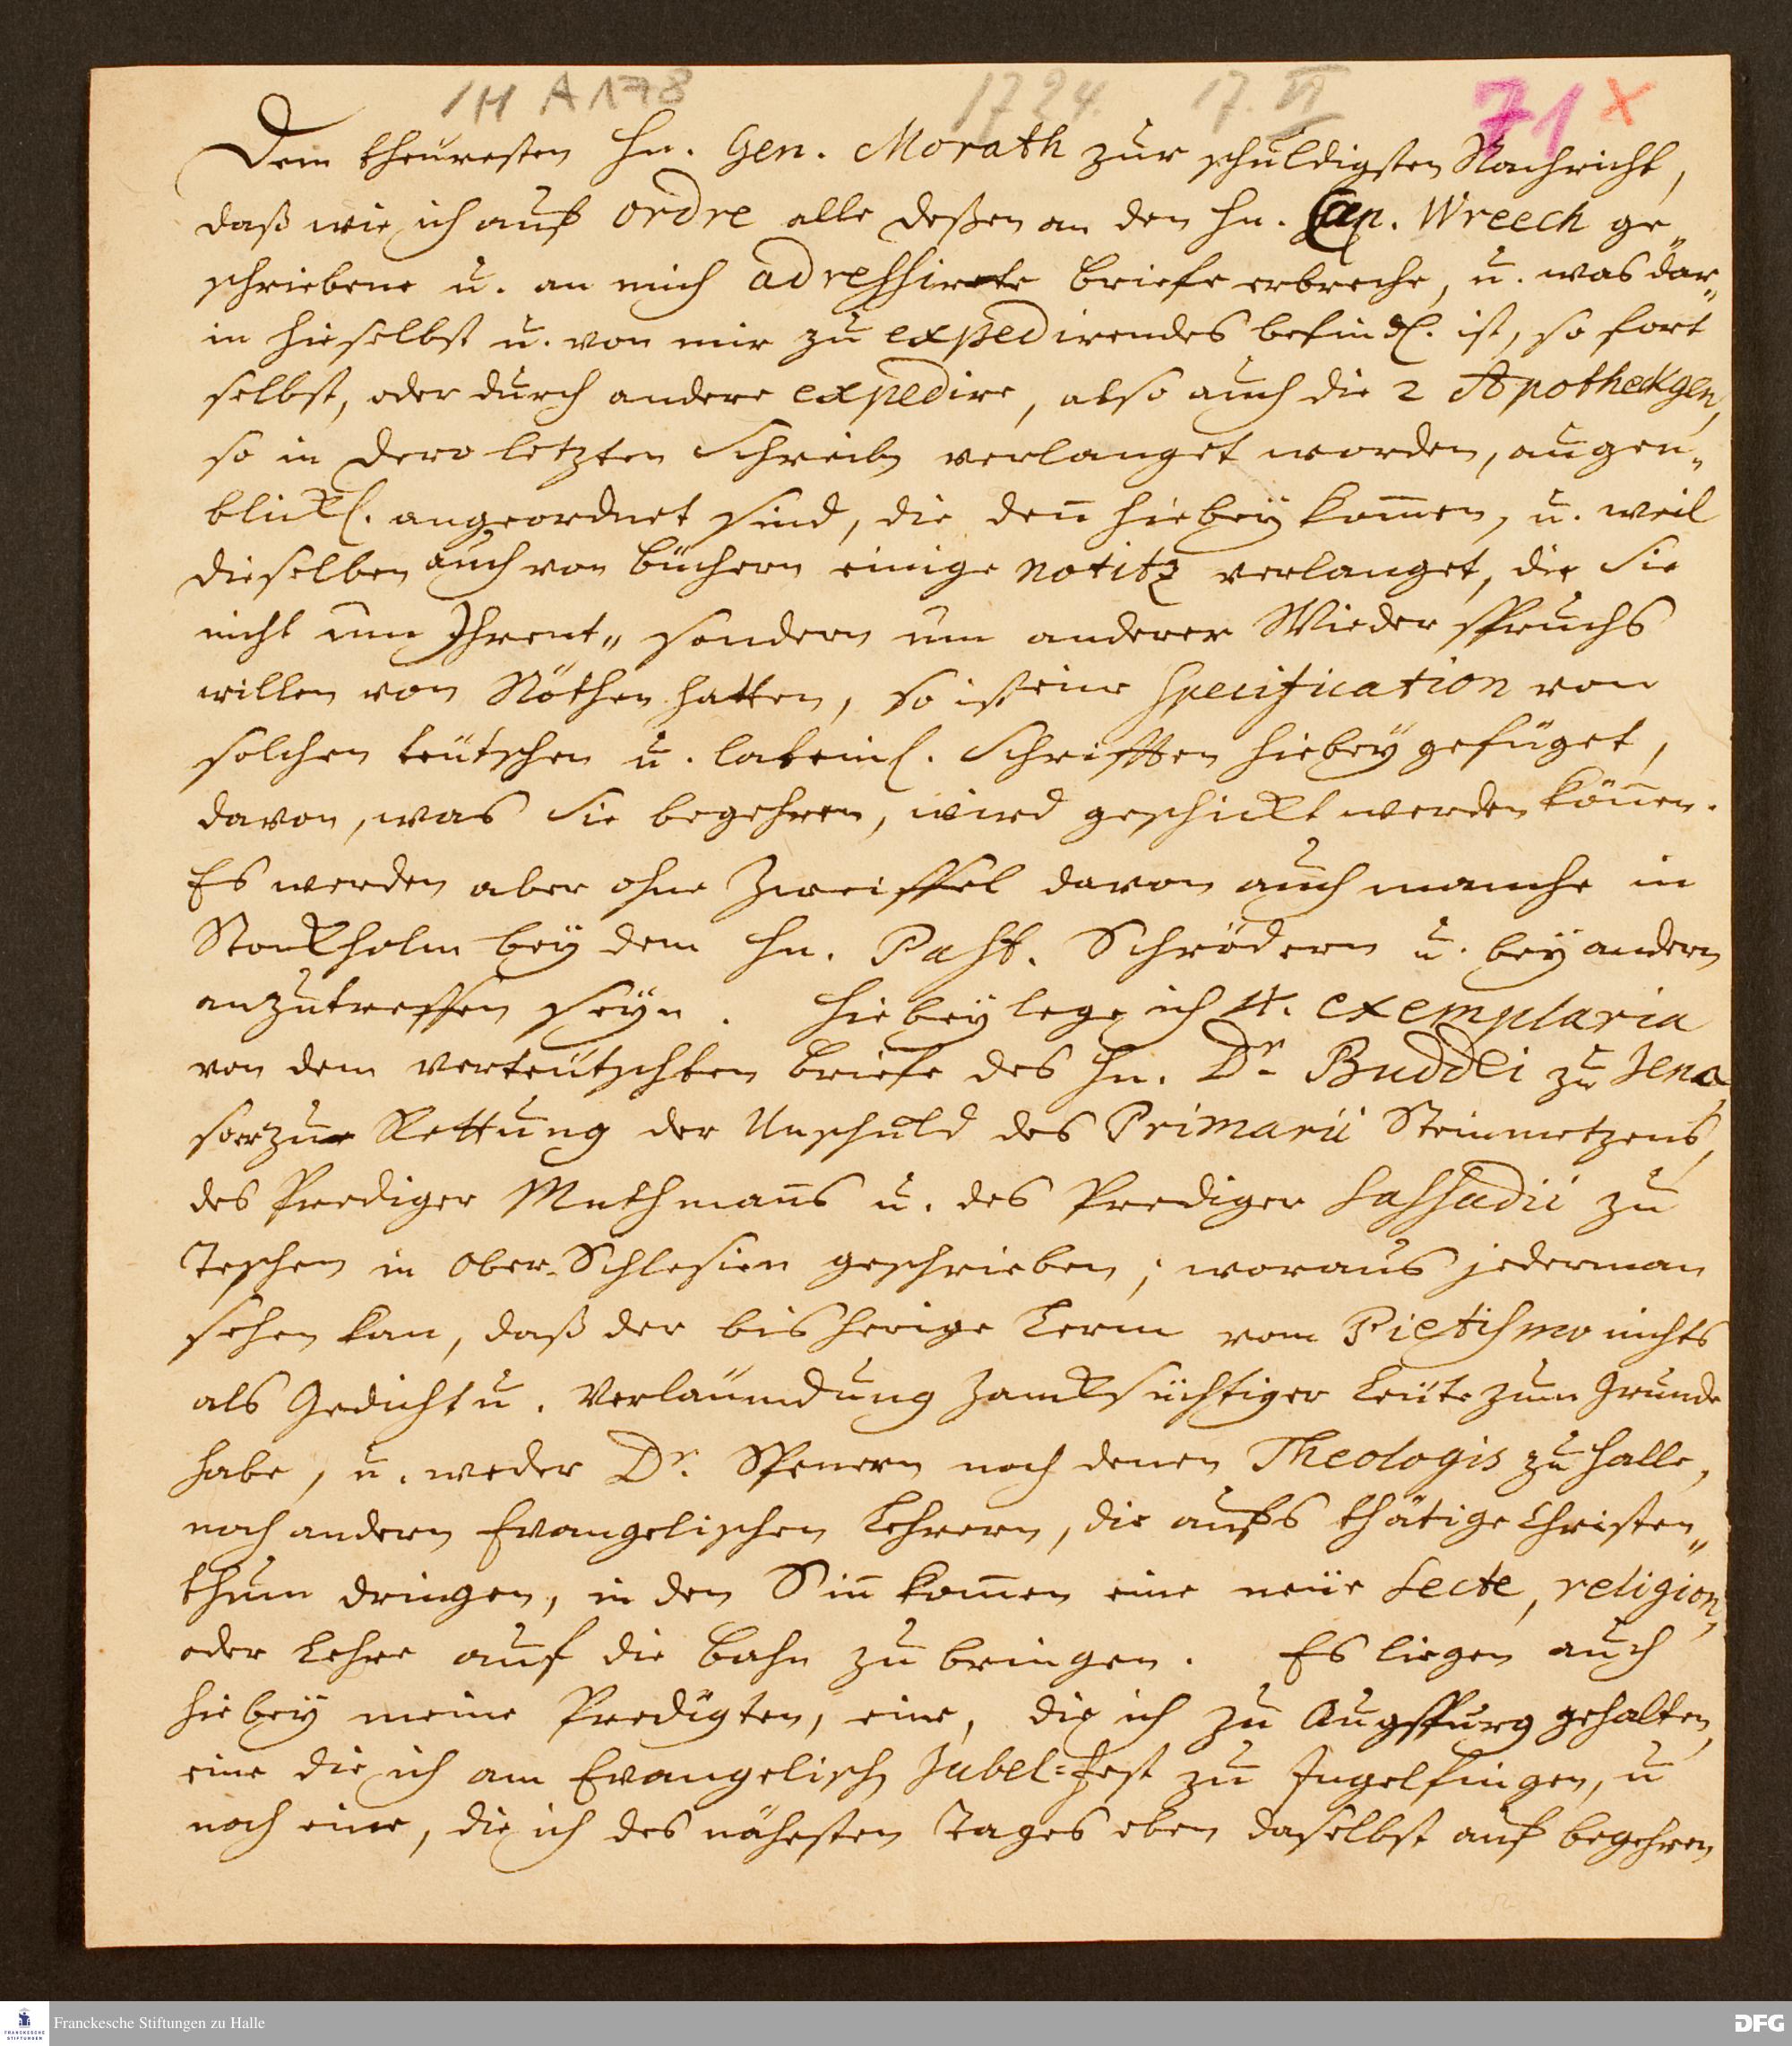 1H A 178 1724. 17. VI 71 x
Dem theuresten Hn. Gen. Morath zur schuldigsten Nachricht,
daß wie ich auf ordre alle deßen an den Hn. Cap. Wreech ge„
schriebene u. an mich adressirete briefe erbreche, u. was dar„
in hieselbst u. von mir zu expedirendes befindl. ist, so fort
selbst, oder durch andere expedire, also auch die 2 Apotheckgen,
so in dero letzten Schreiben verlanget worden, augen„
blickl. angeordnet sind, die den̄ hiebey kom̄en, u. weil
dieselben auch von büchern einige notitz verlanget, die Sie
nicht um Ihrent„ sondern um anderer Wieder spruchs
willen von Nöthen hatten, so ist eine Specification von
solchen teütschen u. lateinl. Schrifften hiebey gefüget,
davon, was Sie begehren, wird geschickt werden kön̄en.
Es werden aber ohne Zweiffel davon auch manche in
Stockholm bey dem Hn. Past. Schrödern u. bey andern
anzutreffen seyn. Hiebey lege ich 4. exemplaria
von dem verteütschten briefe des Hn. Dr Buddei zu Jena,
so er zur Rettung der Unschuld des Primarii Steinmetzens,
des Prediger Muthman̄s u. des Prediger Sassadii zu
Teschen in Ober-Schlesien geschrieben; woraus jederman
sehen kan, daß der bisherige Lerm vom Pietismo nichts
als Gedicht u. Verläumdung zancksüchtiger Leüte zum Grunde
habe, u. weder Dr. Spenern noch denen Theologis zu Halle,
noch andern Evangelischen Lehrern, die aufs thätige Christen„
thum dringen, in den Sin̄ kom̄en eine neüe Secte, religion,
oder Lehre auf die bahn zu bringen. Es liegen auch
hiebey meine Predigten, eine, die ich zu Augspurg gehalten,
eine die ich am Evangelisch Jubel=Fest zu Ingelfingen, u
noch eine, die ich des nähesten Tages eben daselbst auf begehren
Franckesche Stiftungen zu Halle
FRANCKESCHE STIFTUNGEN
DFG